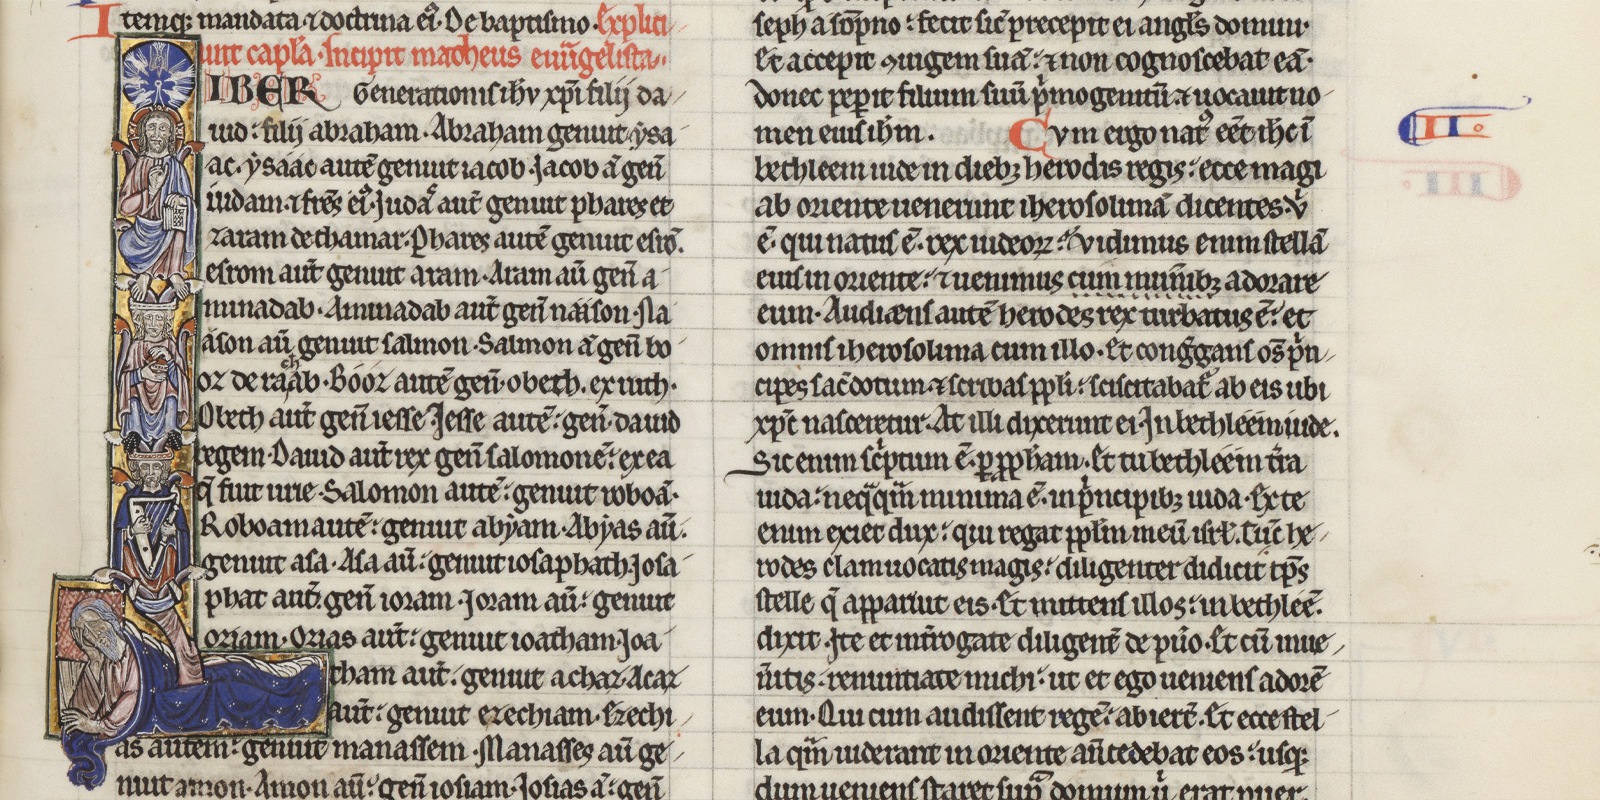 Itemq; mandata ⁊ doctrina ei᷒. De baptismo. Explici-
unt capl̃a. Incipit matheus euãgelista.
LIBER Generationis ihũ xp̃i filij da-
uid: filij abraham. Abraham genuit ẏsa
ac. ẏsaac autẽ genuit iacob. Jacob ã geñ
iudam ⁊ fr̃es ei᷒. Judã aut̃ genuit phares et
zaram de thamar. Phares autẽ genuit esrõ.
esrom aut̃ genuit aram. Aram aũ geñ a-
minadab. Aminadab aut̃ geñ naason. Na-
ason aũ genuit salmon. Salmon ã geñ bo-
oz de rachab. Booz autẽ geñ obeth. ex ruth.
Obeth aut̃ geñ iesse. Jesse autẽ: geñ dauid
regem. Dauid aut̃ rex geñ salomonẽ: ex ea
q̃ fuit urie. Salomon autẽ: genuit roboã.
Roboam autẽ: genuit abẏam. Abẏas aũ:
genuit asa. Asa aũ: genuit iosaphath. Josa-
phat aut̃: geñ ioram. Joram aũ: genuit
oziam. Ozias aut̃: genuit ioatham. Joa-
tham aut̃: genuit achaz. Acaz
aut̃: genuit ezechiam. Ezechi-
as autem: genuit manassem. Manasses aũ ge-
nuit amon. Amon aũ: geñ iosiam. Josias ã: geñ
seph a sõpno: fecit sic̃ precepit ei angl̃s domini.
Et accepit ɔiugem suã: ⁊ non cognoscebat eã.
donec peperit filium suũ p̃mogenitũ. ⁊ uocauit no-
men eius ihm̃. Cvm ergo nat᷒ eẽt ihc̃ ĩ
bethleem iude in dieb; herodis regis: ecce magi
ab oriente uenerunt iherosolimã dicentes. v̉
ẽ. qui natus ẽ. rex iudeoꝝ: Vidimus enim stellã
eius in oriente: ⁊ uenimus cum munib; adorare
eum. Audiens autẽ herodes rex turbatus ẽ: et
omnis iherosolima cum illo. Et cong̃gans os̃ p̃n-
cipes sac̃dotum ⁊ scribas ppl̃i: sciscitabat᷒ ab eis ubi
xpc̃ nasceretur. At illi dixerunt ei. In bethleem iude.
Sic enim sc̃ptum ẽ. p pp̃ham. Et tu bethleem t̃ra
iuda: neq̃q̃m minima ẽ. in p̃ncipib; iuda. Ex te
enim exiet dux: qui regat ppl̃m meũ isrl̃. Tũc he-
rodes clam uocatis magis: diligenter didicit tp̃s
stelle q̃ apparuit eis. Et mittens illos: in bethleẽ.
dixit. Ite et int̃rogate diligent̃ de pũo. Et cũ inue-
ñitis: renuntiate michi: ut et ego ueniens adorẽ
eum. Qui cum audissent regẽ: abiert̃. Et ecce stel-
la q̃m uiderant in oriente añtecedebat eos: usq;
dum ueniens staret sup̃ domum u̍ erat puer.
II.